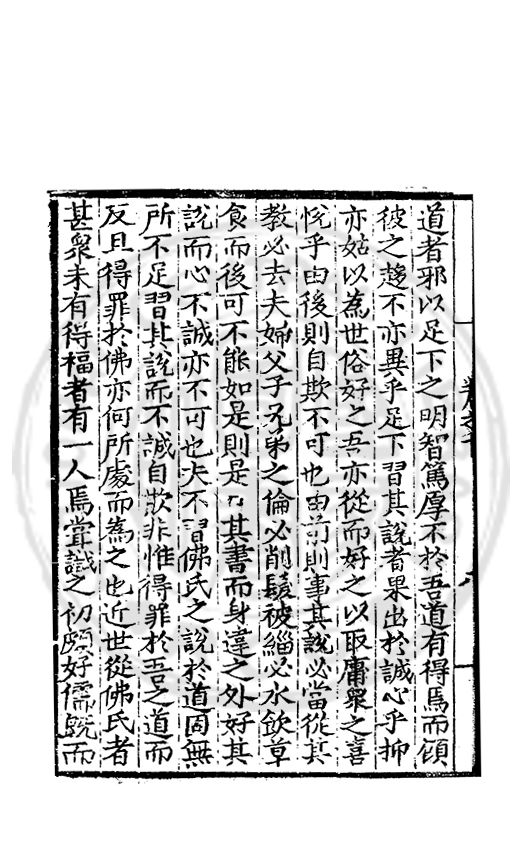 道者邪以足下之明智篤厚不於吾道有得焉而頋
彼之趍不亦異乎足下習其說者果出於誠心乎抑
亦姑以為世俗好之吾亦從而好之以取庸衆之喜
悅乎由後則自欺不可也由前則事其說必當從其
教必去夫婦父子兄弟之倫必削髮被緇必水飲草
食而後可不能如是則是其書而身違之外好其
說而心不誠亦不可也夫不習佛氏之說於道固無
所不足習其說而不誠自欺非惟得罪於吾之道而
反且得罪於佛亦何所處而為之也近世從佛氏者
甚衆未有得福者有一人焉甞識之初頗好儒旣而